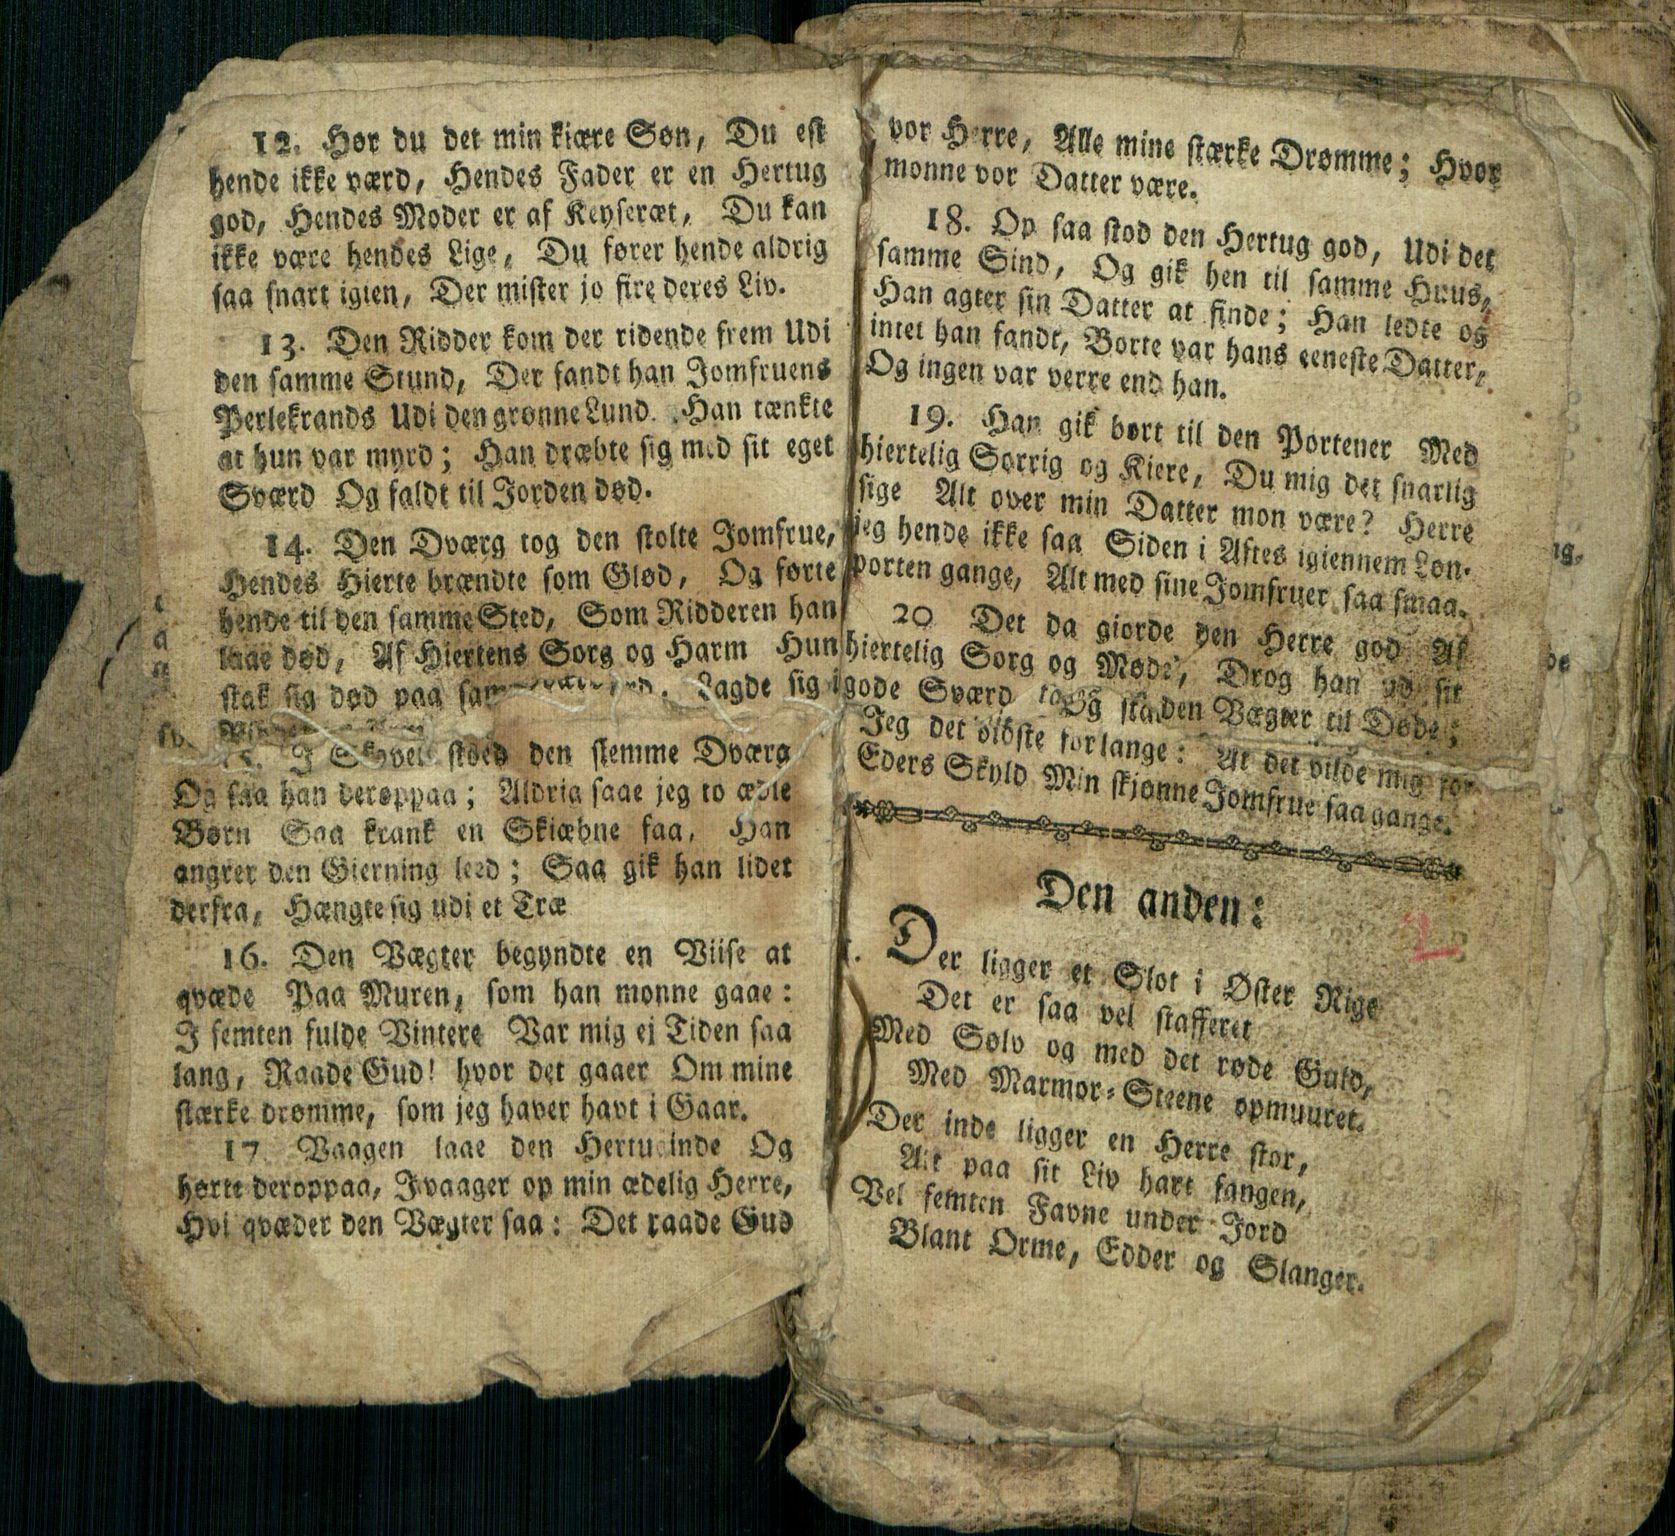 12. Hør du det min kiære Søn, Du est
hende ikke værd, Hendes Fader er en Hertug
god, Hendes Moder er af Keyseræt, Du kan
ikke være hendes Lige, Du fører hende aldrig
saa snart igien, Der mister jo fire deres Liv.
13. Den Ridder kom der ridende frem Udi
den samme Stund, Der fandt han Jomfruens
Perlekrands Udi den grønne Lund. Han tænkte
at hun var myrd; Han dræbte sig med sit eget
Sværd Og faldt til Jorden død.
14. Den Dværg tog den stolte Jomfrue,
Hendes Hierte brændte som Glød, Og førte
hende til den samme Sted, Som Ridderen han
laae død, Af Hiertens Sorg og Harm Hun
stak sig død paa Lagde sig i
15. I stoed den slemme Dværg
Og saa han deroppaa; Aldrig saae jeg to ædle
Børn Saa krank en Skiæbne faa, Han
angrer den Gierning leed; Saa gik han lidet
derfra, Hængte sig udi et Træ
16. Den Vægter begyndte en Viise at
qvæde Paa Muren, som han monne gaae:
I femten fulde Vintere Var mig ej Tiden saa
lang, Raade Gud! hvor det gaaer Om mine
stærke drømme, som jeg haver havt i Gaar.
17 Vaagen laae den Hertuginde Og
hørte deroppaa, I vaager op min ædelig Herre,
Hvi qvæder den Vægter saa: Det raade Gud
vor Herre, Alle mine stærke Drømme; Hvor
monne vor Datter være.
18. Op saa stod den Hertug god, Udi det
samme Sind, Og gik hen til samme Huus,
Han agter sin Datter at finde; Han ledte og
intet han fandt, Borte var hans eeneste Datter,
Og ingen var verre end han.
19. Han gik bort til den Portener Med
hiertelig Sorrig og Kiere, Du mig det snarlig
sige Alt over min Datter mon være? Herre
jeg hende ikke saa Siden i Aftes igiennem Løn-
porten gange, Alt med sine Jomfruer saa smaa.
20 Det da giorde den Herre god Af
hiertelig Sorg og Møde, Drog han ud sit
gode Sværd Og sta den Vægter til Døde;
Jeg det vidste for lange: At det vilde mig for
Eders Skyld Min skjønne Jomfrue saa gange.
Den anden:
1. Der ligger et Slot i Øster Rige
Det er saa vel stafferet
Med Sølv og med det røde Guld,
Med Marmor-Steene opmuuret.
Der inde ligger en Herre stor,
Alt paa sit Liv hart fangen,
Vel femten Favne under Jord
Blant Orme, Edder og Slanger.